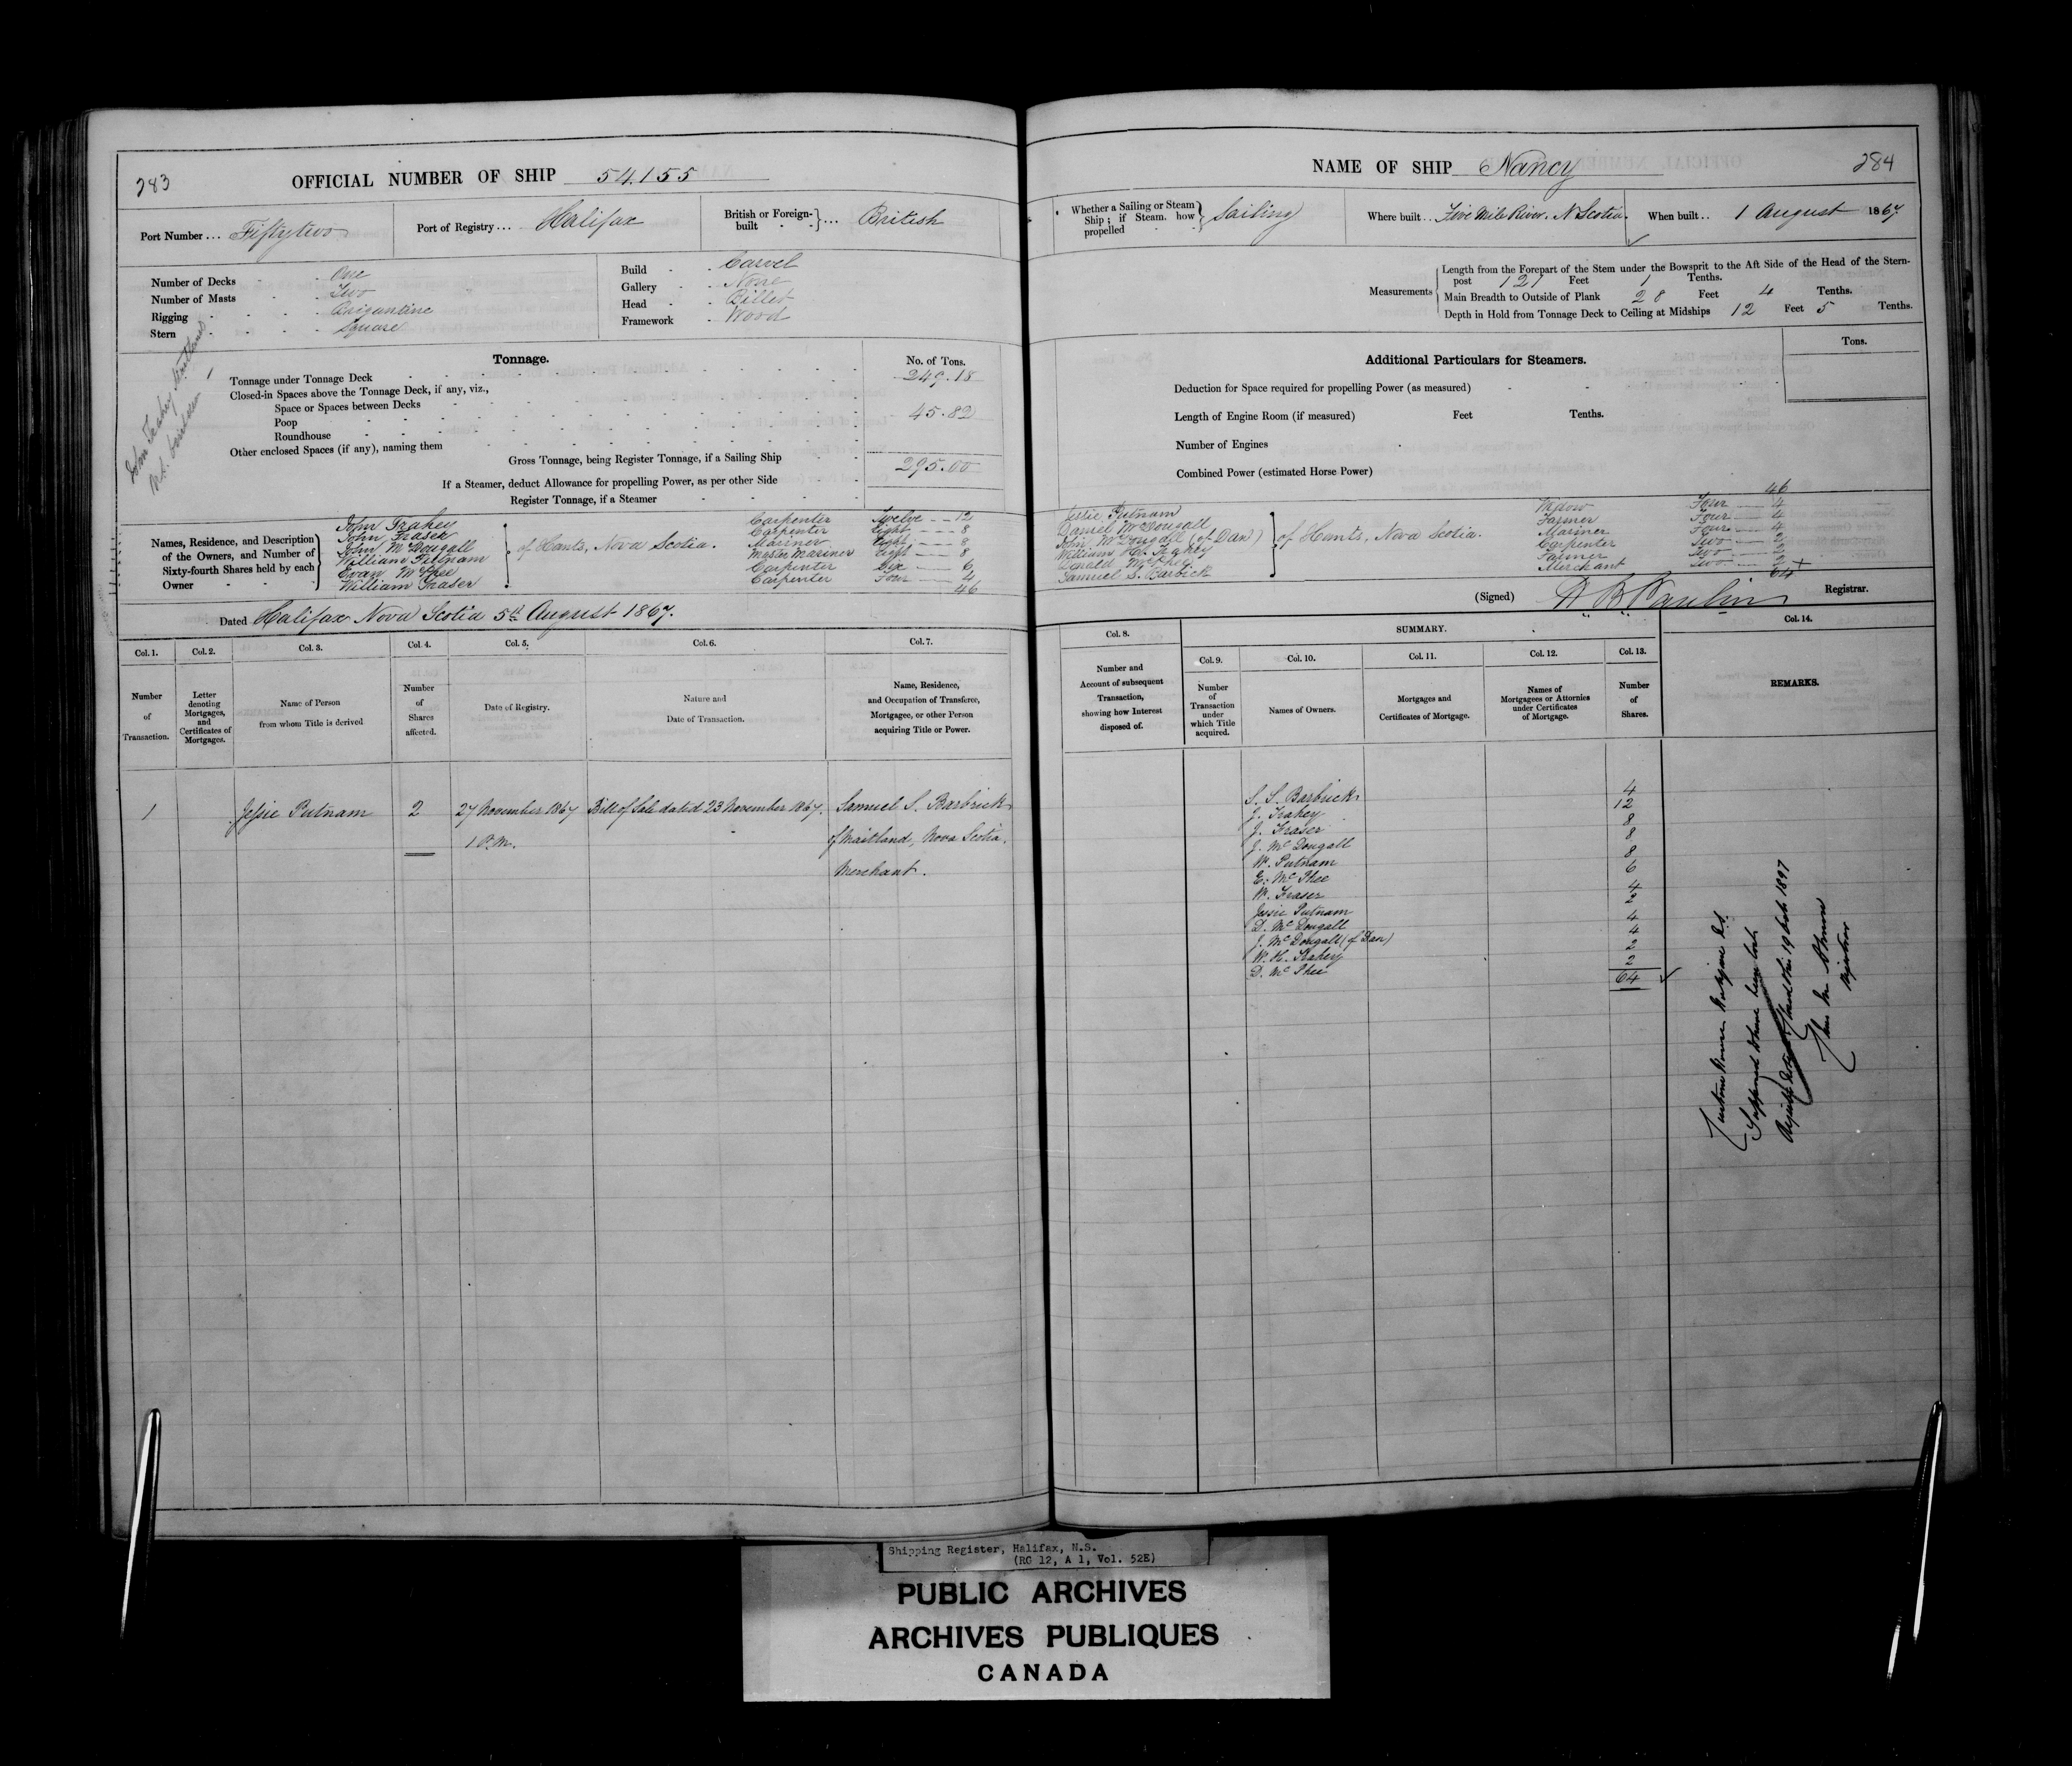 283
OFFICIAL NUMBER OF SHIP 54.155
Port Number ... Fiftytwo
Port of Registry ... Halifax
British or Foreign-built } ... British
Number of Decks - One
Number of Masts - Two
Rigging - Brigantine
Stern - Square
Build - Carvel
Gallery - None
Head - Billet
Framework - Wood
John Frahey Maitland
Tonnage.
No. of Tons.
Tonnage under Tonnage Deck 249.18
Closed-in Spaces above the Tonnage Deck, if any, viz.,
Space or Spaces between Decks
Poop 45.82
Roundhouse
Other enclosed Spaces (if any), naming them
Gross Tonnage, being Register Tonnage, if a Sailing Ship 295.00
If a Steamer, deduct Allowance for propelling Power, as per other Side
Register Tonnage, if a Steamer
Names, Residence, and Description of the Owners, and Number of Sixty-fourth Shares held by each Owner
John Frahey Carpenter Twelve -- 12
John Fraser Carpenter Eight -- 8
John McDougall Mariner Eight -- 8
William Putnam Master Mariner Eight -- 8
Evan McPhee Carpenter Six -- 6
William Fraser Carpenter Four -- 4
of Hants, Nova Scotia.
46
Dated Halifax Nova Scotia 5th August 1867.
Col. 1. Col. 2. Col. 3. Col. 4. Col. 5. Col. 6. Col. 7.
Number of Transaction.
Letter denoting Mortgages, and Certificates of Mortgages.
Name of Person from whom Title is derived
Number of Shares affected.
Date of Registry.
Nature and Date of Transaction.
Name, Residence, and Occupation of Transferee, Mortgagee, or other Person acquiring Title or Power.
1 Jessie Putnam 2 27 November 1867 Bill of Sale dated 23 November 1867. Samuel S. Barbrick
1 P.M. of Maitland, Nova Scotia,
Merchant.
NAME OF SHIP Nancy
284
Whether a Sailing or Steam Ship; if Steam, how propelled } Sailing
Where built .. Five Mile River. N Scotia.
When built .. 1 August 1867.
Measurements
Length from the Forepart of the Stem under the Bowsprit to the Aft Side of the Head of the Stern-
post 121 Feet 1 Tenths.
Main Breadth to Outside of Plank 28 Feet 4 Tenths.
Depth in Hold from Tonnage Deck to Ceiling at Midships 12 Feet 5 Tenths.
Additional Particulars for Steamers.
Tons.
Deduction for Space required for propelling Power (as measured)
Length of Engine Room (if measured) Feet Tenths.
Number of Engines
Combined Power (estimated Horse Power)
46
Jessie Putnam Widow Four -- 4
Daniel McDougall Farmer Four -- 4
John McDougall (of Dan) Mariner Four -- 4
William H. Frahey Carpenter Two -- 2
Donald McPhee Farmer Two -- 2
Samuel S. Barbick Merchant Two -- 2
of Hants, Nova Scotia.
64
(Signed) Registrar.
Col. 8. SUMMARY. Col. 14.
Col. 9. Col. 10. Col. 11. Col. 12. Col. 13.
Number and Account of subsequent Transaction, showing how Interest disposed of.
Number of Transaction under which Title acquired.
Names of Owners.
Mortgages and Certificates of Mortgage.
Names of Mortgagees or Attornies under Certificates of Mortgage.
Number of Shares.
REMARKS.
S. S. Barbrick 4
J. Frahey 12
J. Fraser 8
J. McDougall 8
W. Putnam 8
E. McPhee 6
W. Fraser 4
Jessie Putnam 2
D. McDougall 4
J. McDougall (of Dan) 4
W. H. Frahey 2
D. McPhee 2
64
Supposed to have been lost.
1897
Registrar
Shipping Register, Halifax, N.S.
(RG 12, A 1, Vol. 52E)
PUBLIC ARCHIVES
ARCHIVES PUBLIQUES
CANADA